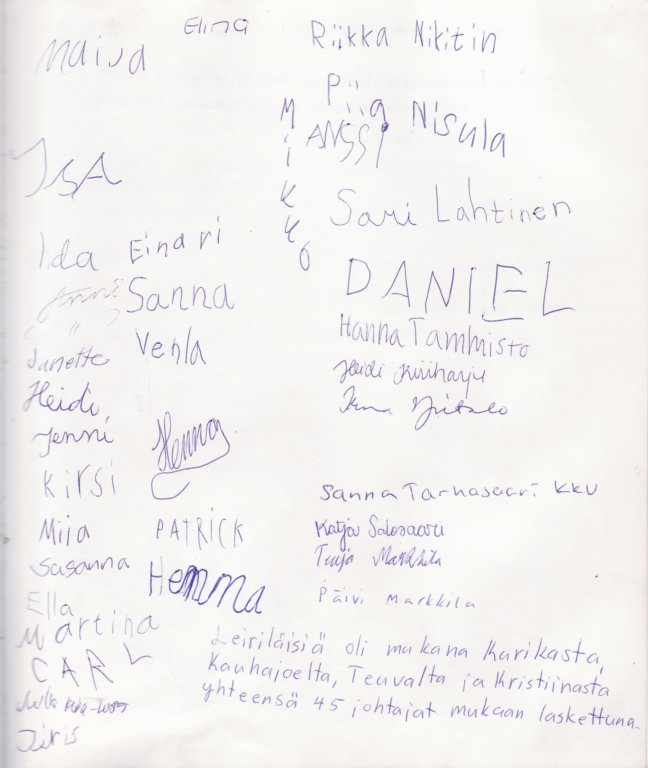 Elina
Maija
Riikka Nikitin
Piia Nisula
MIKKO
ANSSI
ISA
Sari Lahtinen
Iida
Einari
DANIEL
Jenni
Sanna
Hanna Tammisto
Venla
Janette
Heidi
Heidi
Jenni
Henna
Kirsi
Sanna Tarhasaari KKU
Miia
PATRICK
Katja Salosaari
Tuija Markkila
Susanna
Hemma
Päivi Markkila
Ella
Martina
CARL
Leiriläisiä oli mukana Kurikasta,
Kauhajoelta, Teuvalta ja Kristiinasta
yhteensä 45 johtajat mukaan laskettuna.
Jiris